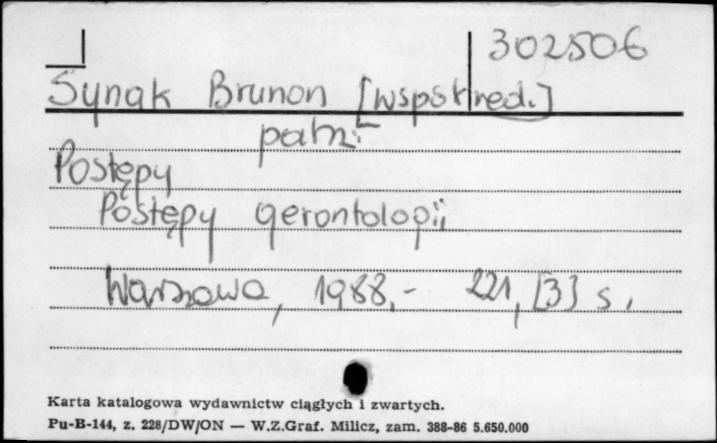 302506
Synak Brunon [współred.]
patrz
Postępy
Postępy gerontologii
Warszawa, 1988.- 221, [3] s.
Karta katalogowa wydawnictw ciągłych i zwartych.
Pu-B-144, z. 228/DW/ON — W.Z.Graf. Milicz, zam. 388-86 5.650.000